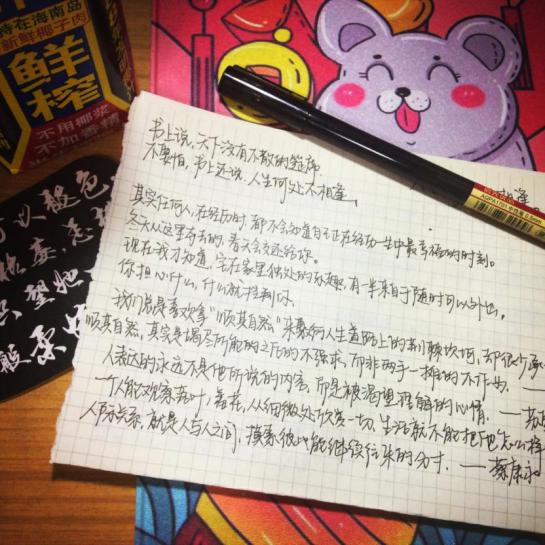 特在海南岛
新鲜椰子肉
鲜榨
不用椰浆
不加香精
书上说，天下没有不散的筵席。
不要怕，书上还说，人生何处不相逢。
其实任何人，在经历时，都不会知道自己正在经历一生中最幸福的时刻。
冬天从这里夺去的，春天会交还给你。
现在我才知道，宅在家里独处的乐趣，有一半来自于随时可以外出。
你担心什么，什么就控制你。
我们总是喜欢拿“顺其自然”来敷衍人生道路上的荆棘坎坷，却很少承
顺其自然，其实是竭尽所能的之后的不强求，而非两手一摊的不作为。
人表达的永远不是他所说的内容，而是被渴望理解的心情。——苏
一个人能观察落叶、羞花，从细微处欣赏一切，生活就不能把他怎么样
人际关系，就是人与人之间，摸索彼此能继续往来的分寸。——蔡康永